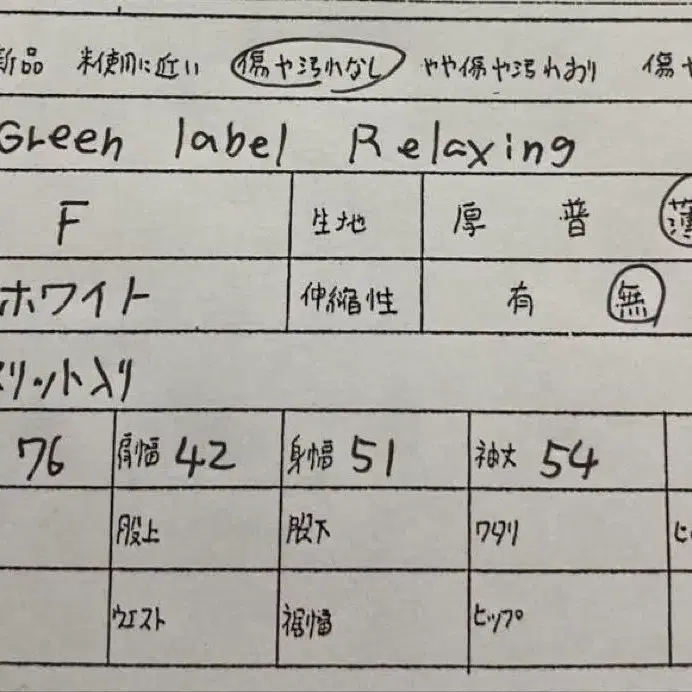 新品 未使用に近い 傷や汚れなし やや傷や汚れあり 傷や
Green label Relaxing
F 生地 厚 普 薄
ホワイト 伸縮性 有 無
スリット入り
76 肩幅 42 身幅 51 袖丈 54
股上 股下 ワタリ
ウエスト 裾幅 ヒップ